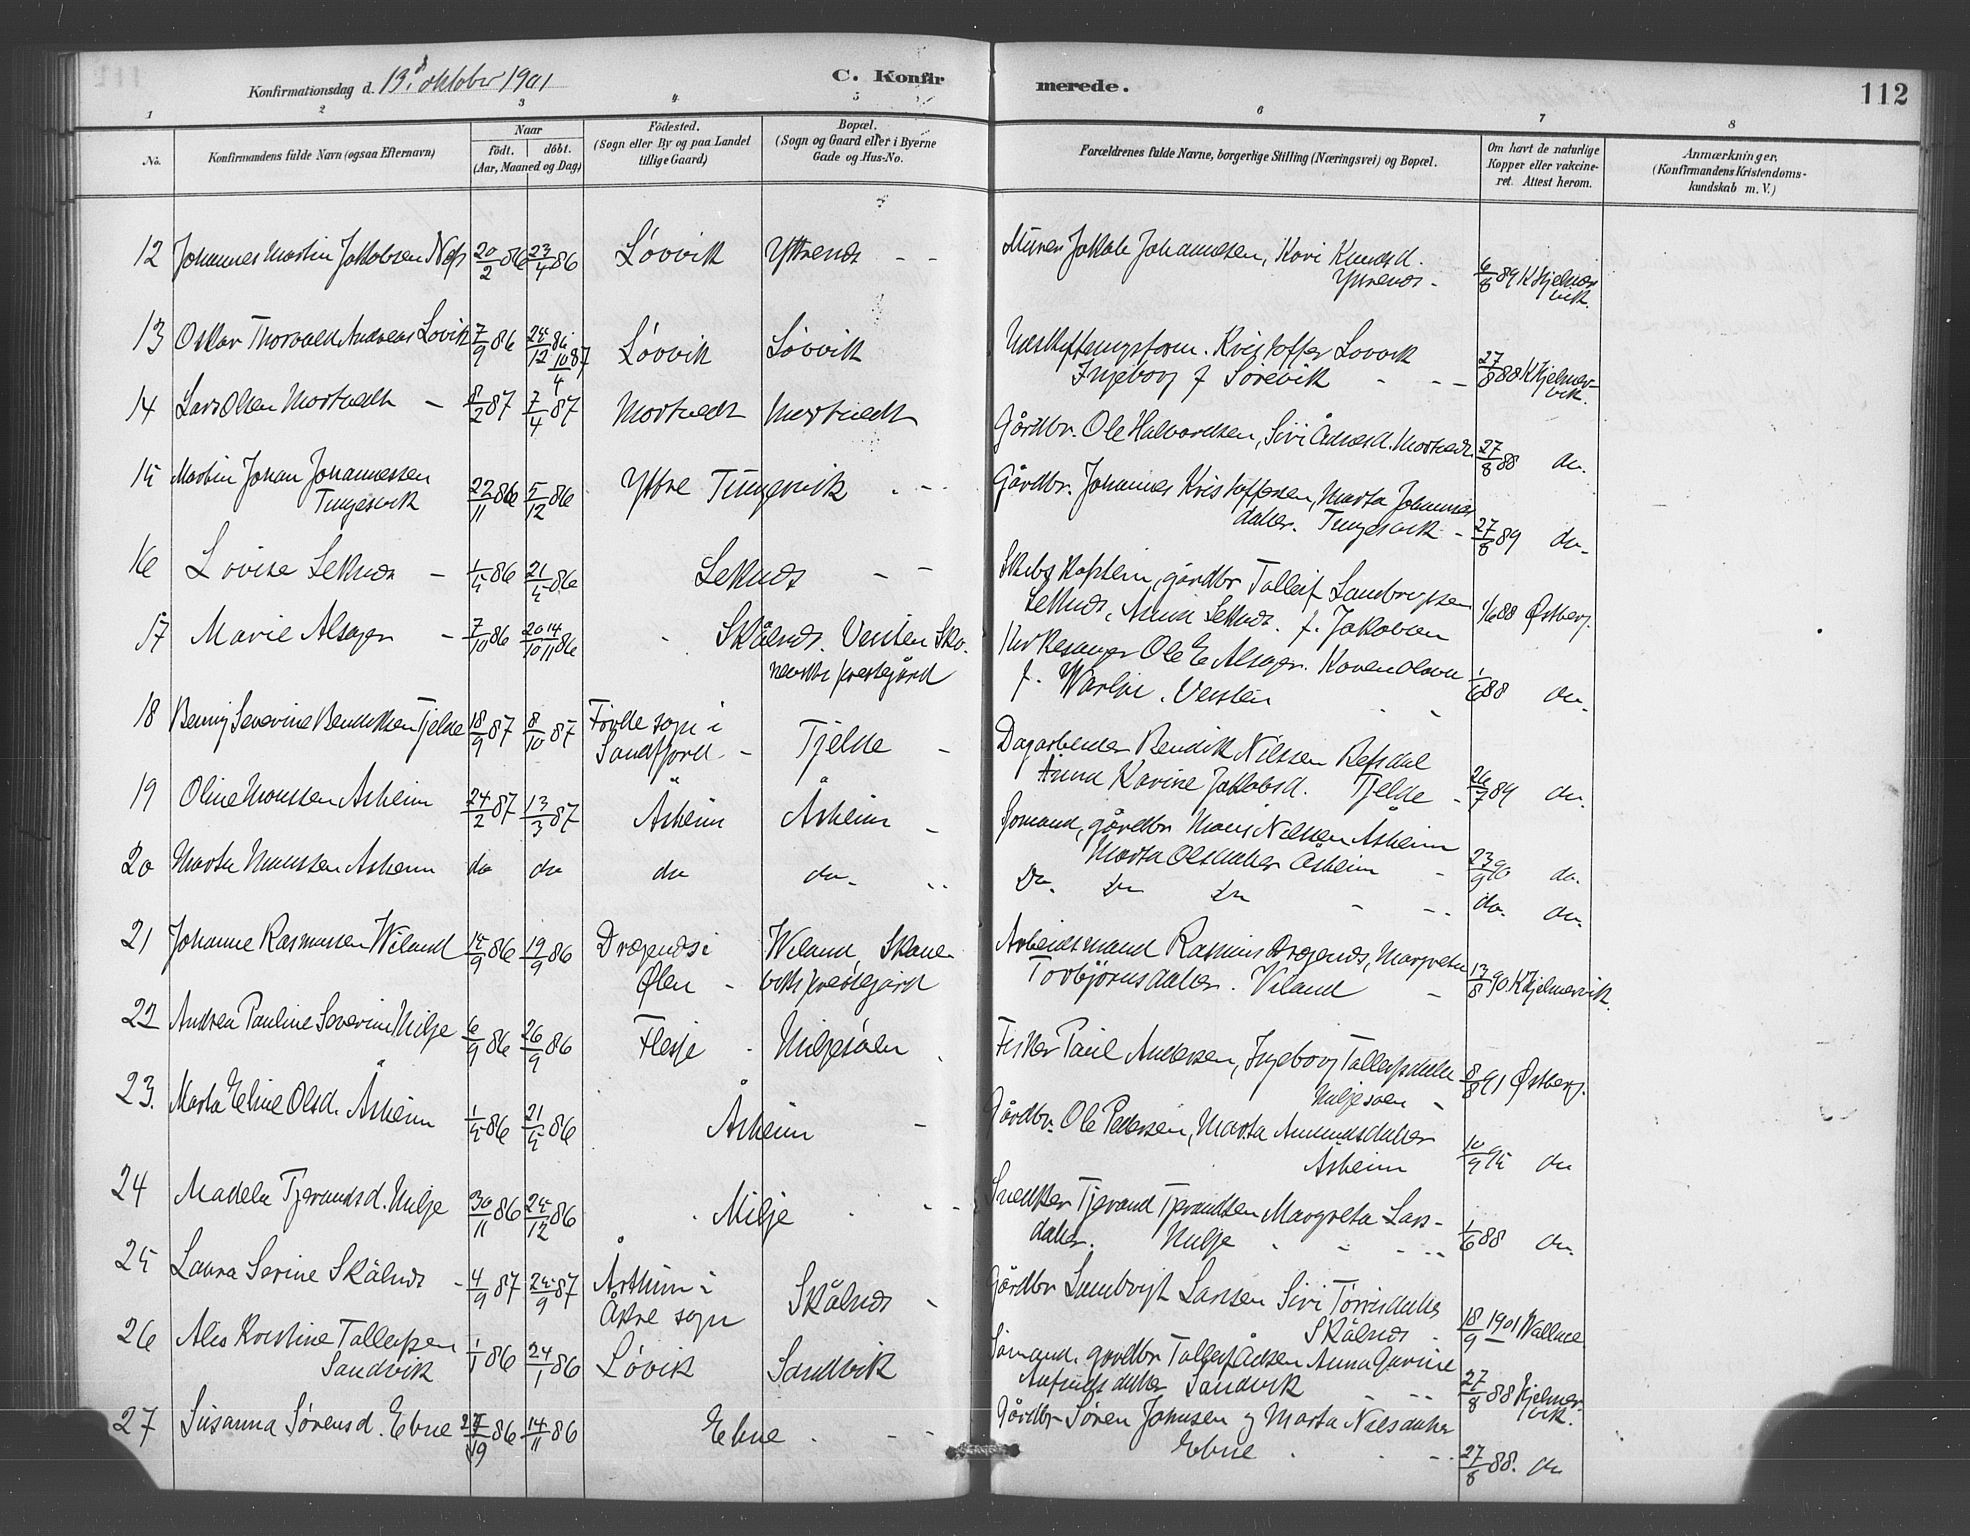 Konfirmationsdag d. 13. oktober 1901
C. Konfirmerede.
112
1 2 3 4 5 6 7 8
No.
Konfirmandens fulde Navn (ogsaa Efternavn)
Naar
födt. döbt.
(Aar, Maaned og Dag)
Födested.
(Sogn eller By og paa Landet
tillige Gaard)
Bopæl.
(Sogn og Gaard eller i Byerne
Gade og Hus-No.
Forældrenes fulde Navne, borgerlige Stilling (Næringsvei) og Bopæl.
Om havt de naturlige
Kopper eller vakcine-
ret. Attest herom.
Anmærkninger,
(Konfirmandens Kristendoms-
kundskab m. V.)
12 Johannes Martin Jakobsen Næs 20/2 86 23/4 86 Løvvik Yttrenes Murer Jakob Johannesen, Kari Knudsd.
Yttrenes 6/8 89 K Kjelmervik.
13 Oskar Thorvald Andreas Lovik 7/9 86 25/12 86 10/4 87 Løvvik Løvvik Kristoffer Lovvik
Ingeborg f Sørevik 27/8 88 K Kjelmervik.
14 Lars Olsen Mortvedt 8/2 87 7/4 87 Mortvedt Mortvedt Gårdbr. Ole Halvordsen, Siri Mortvedt 27/8 88 do.
15 Martin Johan Johannessen
Tungesvik 22/11 86 5/12 86 Yttre Tungesvik Gårdbr. Johannes Kristoffersen, Marta Johannes
datter. Tungesvik 27/8 89 do.
16 Lovise Leknes 1/5 86 21/5 86 Leknes Skibskaptein, gårdbr Tolleif Lambregtsen
Leknes, Anna Leknes. f. Jakobsen 1/6 88 Østberg.
17 Marie Alsager 7/10 86 20/10 14/11 86 Skålnes. Veslen Skå-
neviks prestegård Kirkesanger Ole E Alsager. Karen Olava
f. Warloe. Veslen 1/6 88 do.
18 Benny Severine Bendiksen Tjelde 18/9 87 8/10 87 Førde sogn i
Søndfjord Tjelde Dagarbeider Bendik Nilssen Refsdal
Anna Karine Jakobsd. Tjelde 26/7 89 do.
19 Oline Monssen Åsheim 24/2 87 13/3 87 Åsheim Åsheim Sømand, gårdbr Mons Nilssen Åsheim
Marta Olsdatter Åsheim 23/9 90 do.
20 Marta Monssen Åsheim do do do do. Do. Do Do do. do.
21 Johanne Rasmussen Wiland 15/9 86 19/9 86 Dragenes i
Ølen Wiland, Skåne-
viks prestegård Arbeidsmand Rasmus Dragenes, Margreta
Torbjørnsdatter. Viland 13/8 90 K Kjelmervik.
22 Andrea Pauline Severine Milje 6/9 86 26/9 86 Flesje Miljesøen Fisker Paul Andersen, Ingeborg Tolleifsdatter
Miljesøen 8/8 91 Østberg.
23. Marta Eline Olsd. Åsheim 1/5 86 21/5 86 Åsheim Gårdbr. Ole Pedersen, Marta Amundsdatter
Åsheim 10/9 95 do
24 Madela Tjerandsd. Milje 30/11 86 25/12 86 Milje Snedker Tjerand Tjerandsen Margreta Lars-
datter. Milje 1/6 88 do.
25 Laura Serine Skålnes 4/9 87 25/9 87 Arthun i
Åkre sogn Skålnes Gårdbr Lambrigt Larsen Siri Tørrisdatter
Skålnes 18/9 1901 Wallace
26 Ales Kristine Tolleifsen
Sandvik 1/1 86 24/1 86 Løvik Sandvik Sømand, gårdbr Tolleif Adsen Anna Gurine
Anfindsdatter Sandvik 27/8 88 Kjelmervik.
27 Susanna Sørensd. Ebne 86 14/11 86 Ebne Gårdbr Søren Johnsen og Marta Nilsdatter
Ebne 27/8 88. do